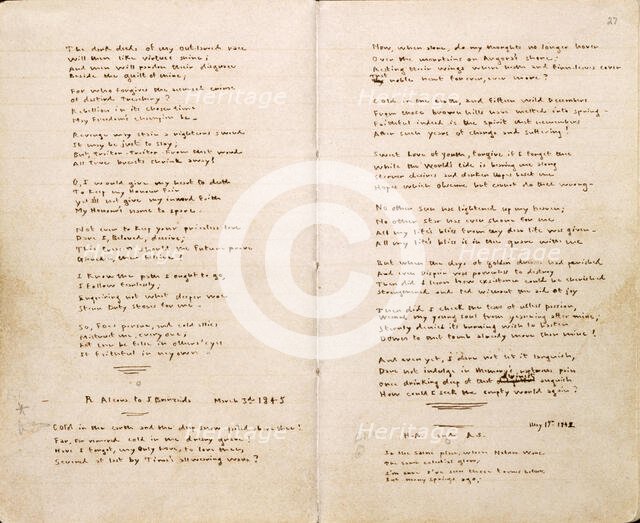 The dark deeds of my outlawed race
Will then like virtues shine;
And men will pardon their disgrace
Beside the guilt of mine;
For who forgives the accursed crime
Of dastard treachery?
Rebellion in its chosen time
My Freedom's champion be
Revenge may stain a righteous sword
It may be just to slay;
But, Traitor - Traitor - from that word
All true breasts shrink away!
O, I would give my heart to death
To keep my Honour fair
yet I'll not give my inward faith
My Honour's name to spare -
Not even to keep your priceless love
Dare I, Beloved, deceive;
This treason should the Future prove
I know the path I ought to go,
I follow fearlessly;
Enquiring not what deeper woe
Stern Duty stores for me -
So, Foes pursue, and cold allies
Mistrust me, every one;
Let me be false in others' eyes
If faithful in my own -
R Alcona to J Brenzaida March 3rd 1845
Cold in the earth and the deep snow piled above thee!
Far, far removed cold in the dreary grave
Have I forgot, my Only Love, to love thee,
Severed at last by Time's allwearing wave?
27
Now, when alone, do my thoughts no longer hover
Over the mountains on Angora's shore;
Resting their wings where heath and fern-leaves cover
That noble heart for ever, ever more?
Cold in the earth, and fifteen wild Decembers
From those brown hills have melted into spring -
Faithful indeed is the spirit that remembers
After such years of change and suffering!
Sweet Love of youth, forgive if I forget thee
While the World's tide is bearing me along
Sterner desires and darker Hopes beset me
Hopes which obscure but cannot do thee wrong -
No other Sun has lightened up my heaven;
No other Star has ever shone for me
All my life's bliss from thy dear life was given -
All my life's bliss is in the grave with thee
But when the days of golden dreams had perished
And even Despair was powerless to destroy
Then did I learn how existence could be cherished
Strengthened and fed without the aid of joy
Then did I check the tears of useless passion,
Weaned my young soul from yearning after thine;
Sternly denied its burning wish to hasten
Down to that tomb already more than mine!
And even yet, I dare not let it languish,
Dare not indulge in Memory's rapturous pain
Once drinking deep of that divinest anguish
How could I seek the empty world again?
A.S.
In the same place, when Nature wore
The same celestial glow,
I'm sure I've seen these forms before
But many springs ago;
© Heritage